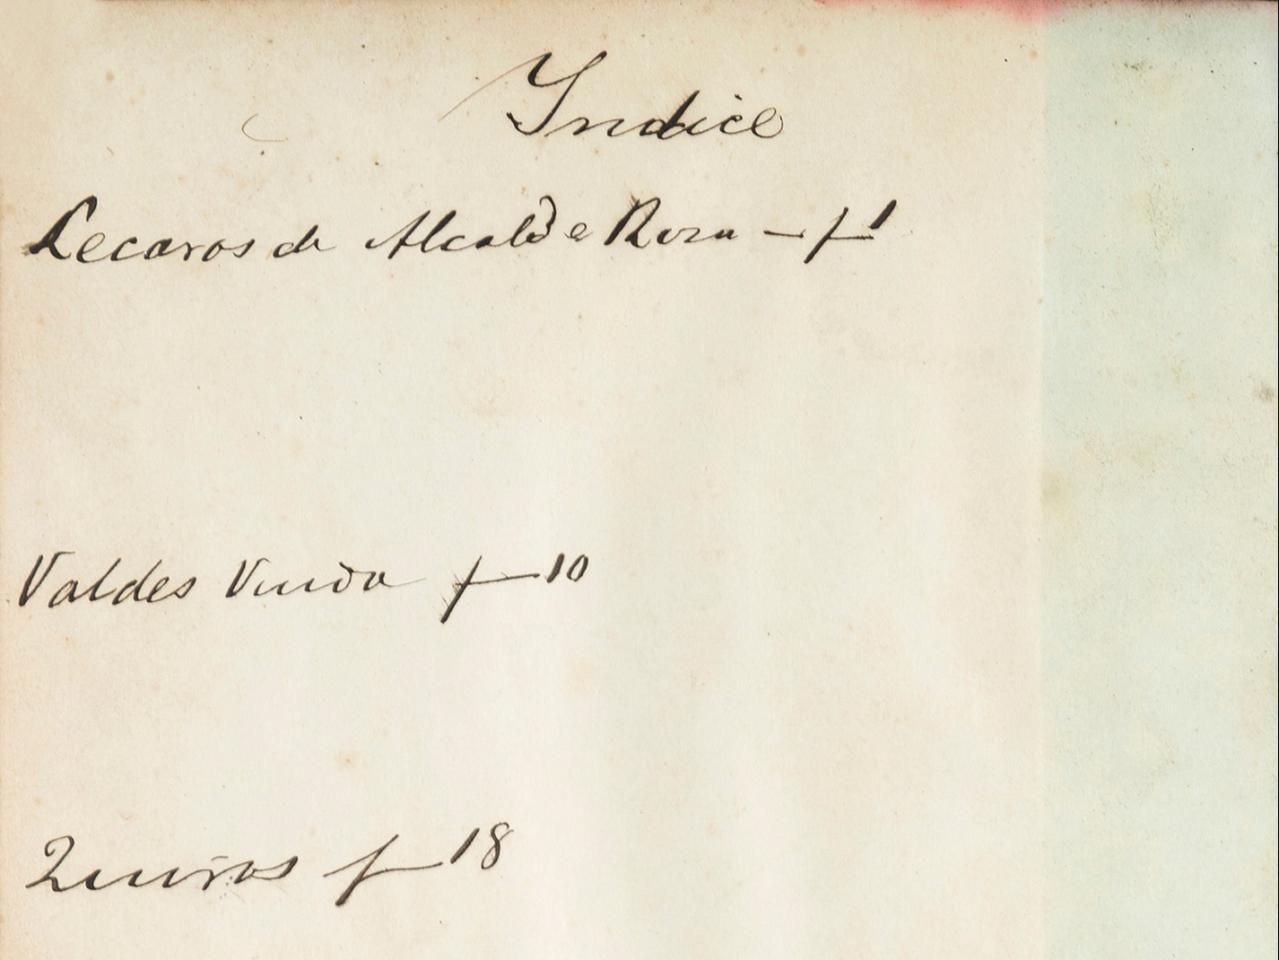 Yndice
Lecaros de Alcalde Rosa - f 1
Valdes Viuda f - 10
Quiros f - 18